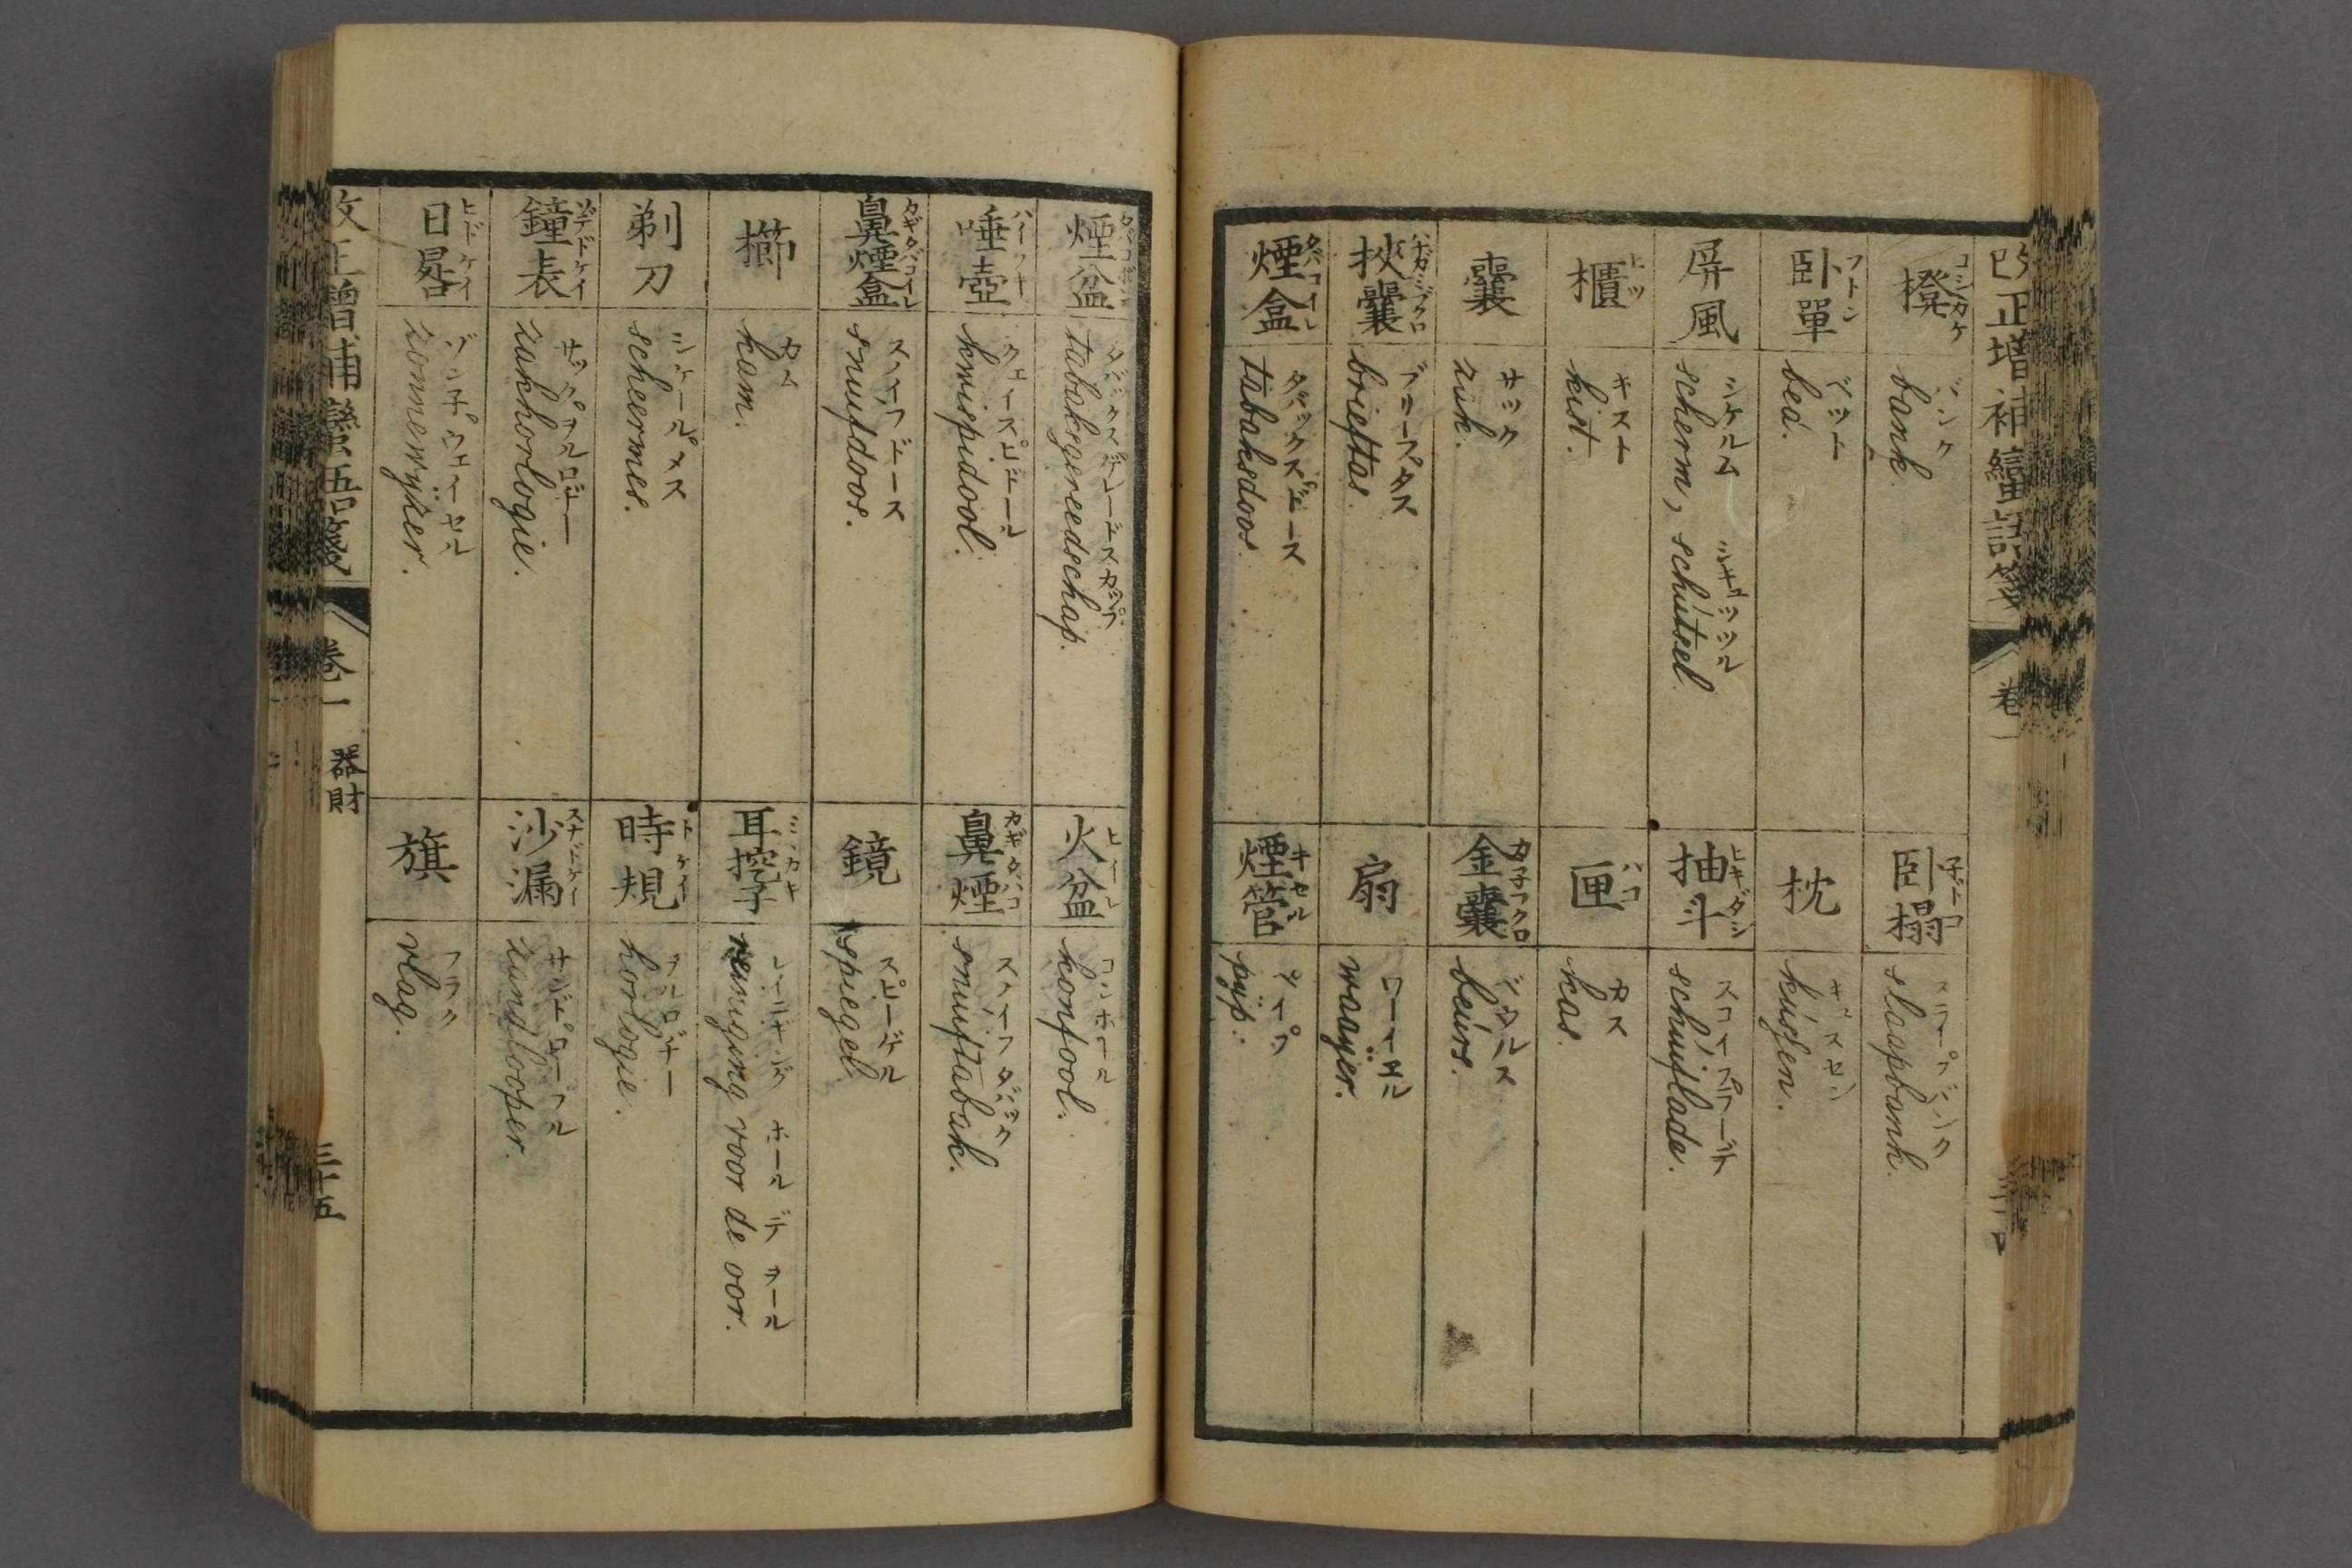 改正増補蠻語箋
卷一
橙 コシカケ
バンク
bank.
臥單 フトン
ベット
bed.
屏風
シケルム シキュッツル
scherm, schútsel.
櫃 ヒツ
キスト
kist.
囊
サック
zak.
挾囊 ハナガミブクロ
ブリーフタス
brieftas.
煙盒 タバコイレ
タバックスドース
tabaksdoos.
臥榻 子ドコ
スラープバンク
slaapbank.
枕
キュスセン
kússen.
抽斗 ヒキダシ
スコイフラーデ
schuiflade.
匣 ハコ
カス
kas.
金囊 カ子フクロ
ビウルス
beúrs.
扇
ワーイエル
waaÿer.
煙管 キセル
ペイプ
pÿp.
煙盆
tabaksgereedschap.
唾壺 ハイフキ
クェースピドール
kwispidool.
鼻煙盒 カギタバコイレ
スノイフドース
snuifdoos.
櫛
カム
kam.
剃刀
シケールメス
scheermes.
鐘表 ソデドケイ
サックヲルロジー
zakhorlogie.
日晷 ヒドケイ
ゾン子ウェイセル
zonnewÿzer.
火盆 ヒイレ
コンホール
konfool.
鼻煙 カギタバコ
スノイフタバック
snuiftabak.
鏡
スピーゲル
spiegel.
耳挖子 ミヽカキ
レイニギング ホール デ ヲール
reiniging voor de oor.
時規 トケイ
ヲルロジー
horlogie.
沙漏 スナドケイ
サンドロープル
zandlooper.
旗
フラク
vlag.
改正增補蠻語箋
卷一
器財
三十五